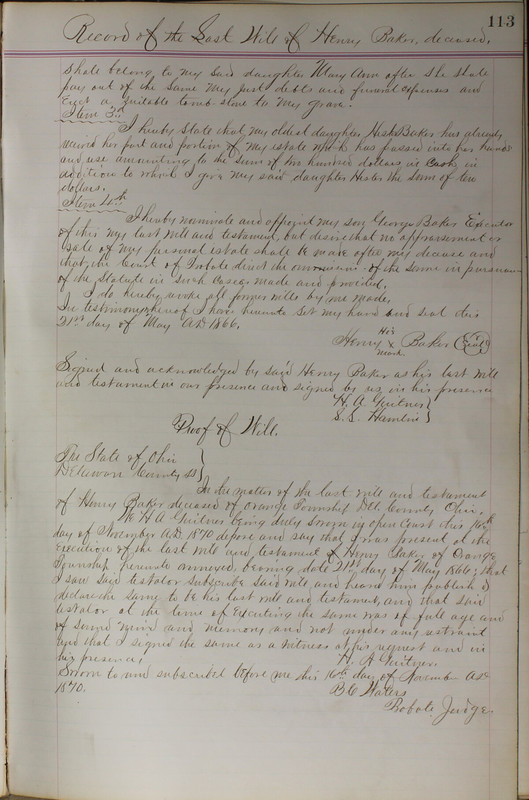 113
Record of the Last Will of Henry Baker, deceased.
shall belong to my said daughter Mary Ann after she shall
pay out of the same my just debts and funeral expenses and
Erect a suitable tomb stone to my grave.
Item 3d
I hereby state that my oldest daughter Baker has already
received her part and portion of my estate which has passed into her hands
and use amounting to the sum of two hundred dollars in Cash, in
addition to which I give my said daughter Hester the sum of ten
dollars.
Item 4th
I hereby nominate and appoint my son George Baker Executor
of this my last will and testament, but desire that no appraisement or
sale of my personal estate shall be made after my decease and
that the Court of Probate direct the omission of the same in pursuance
of the Statute in such cases made and provided.
I do hereby revoke all former wills by me made.
In testimony whereof I have hereunto set my hand and seal this
21st day of May A.D. 1866.
His
Henry X Baker (Seal)
mark
Signed and acknowledged by said Henry Baker as his last will
and testament in our presence and signed by us in his presence
H. A. Guitner }
S. S. Hamlin }
Proof of Will.
The State of Ohio }
Delaware County SS }
In the matter of the last will and testament
of Henry Baker deceased of Orange Township Del County Ohio,
H A Guitner being duly sworn in open Court this 16th
day of November A.D. 1870 depose and say that I was present at the
Execution of the last will and testament of Henry Baker of Orange
Township hereunto annexed, bearing date 21st day of May 1866; that
I saw said testator subscribe said will and heard him publish &
declare the same to be his last will and testament, and that said
testator at the time of Executing the same was of full age and
of sound mind and memory and not under any restraint
and that I signed the same as a witness at his request and in
his presence,
H. A. Guitner.
Sworn to and subscribed before me this 16th day of November A.D.
1870.
B C Waters
Probate Judge